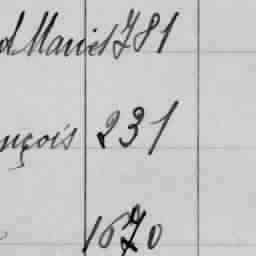 d Marie 1781
nçois 231
1670